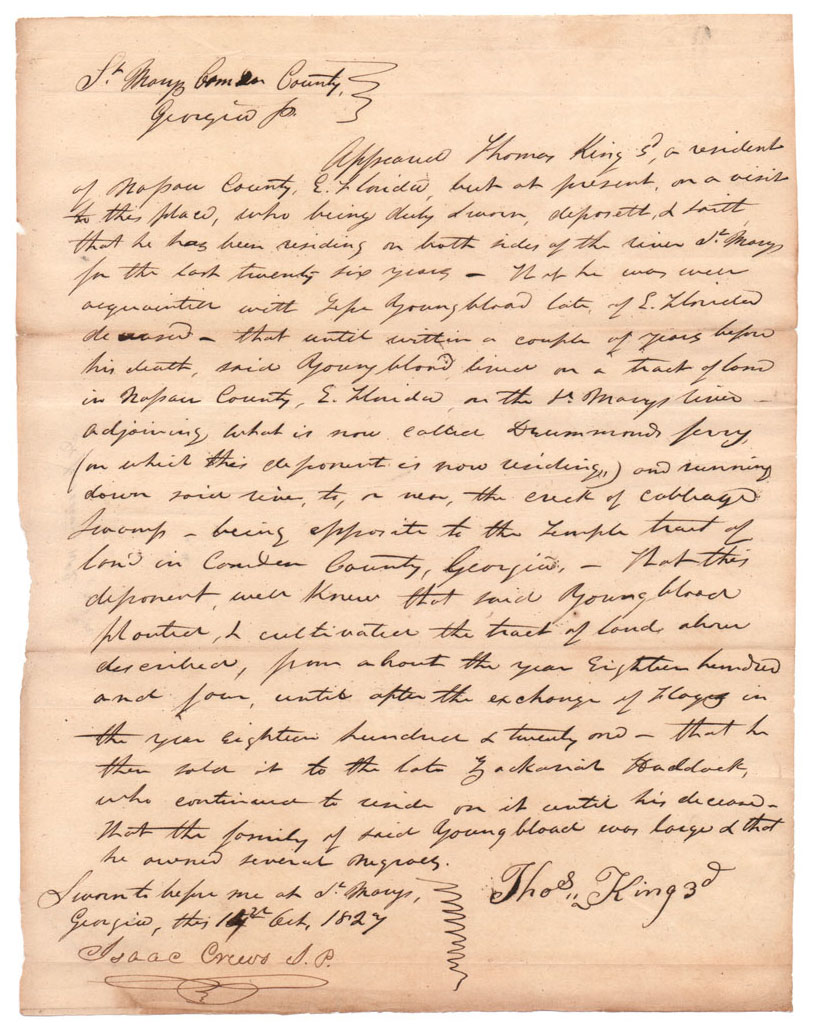 St Marys Camden County,
Georgia ss.
Appeared Thomas King 3d, a resident
of Nassau County, E. Florida, but at present, on a visit
to this place, who being duly sworn, deposeth, & saith,
that he has been residing on both sides of the river St. Marys
for the last twenty six years – that he was well
acquainted with Jesse Youngblood late, of E. Florida
deceased – that until within a couple of years before
his death, said Youngblood, lived on a tract of land
in Nassau County, E. Florida, on the St. Marys river –
adjoining, what is now called Drummonds ferry,
(on which this deponent is now residing,) and running
down said river, to, or near, the creek of cabbage
swamp – being opposite to the Temple tract of
land in Camden County, Georgia, – That this
deponent, well knew that said Youngblood
planted, & cultivated the tract of land above
described, from about the year Eighteen hundred
and four, until after the exchange of Flags in
the year Eighteen hundred & twenty one – that he
then sold it to the late Zackariah Haddock,
who continued to reside on it until his decease –
that the family of said Youngblood was large & that
he owned several negroes.
Sworn to before me at St. Marys,
Georgia, this Oct, 1827
Thos King 3d
Isaac Crews J.P.